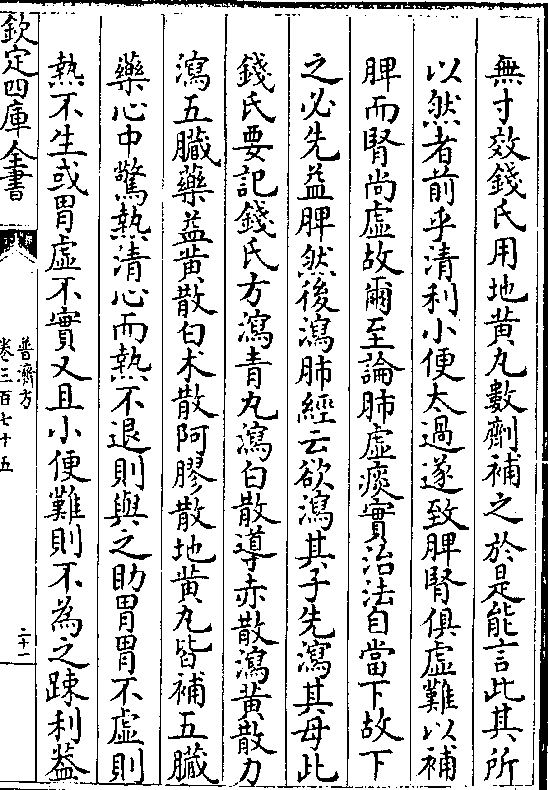 無寸效錢氏用地黄丸數劑補之於是能言此其所
以然者前乎清利小便太過遂致脾腎俱虛難以補
脾而腎尚虛故爾至論肺虛痰實治法自當下故下
之必先益脾然後瀉肺經云欲瀉其子先瀉其母此
錢氏要記錢氏方瀉青丸瀉白散導赤散瀉黄散乃
瀉五臟藥益黄散白术散阿膠散地黄丸皆補五臟
藥心中驚熱清心而熱不退則與之助胃胃不虛則
熱不生或胃虛不實又且小便難則不為之踈利葢
欽定四庫全書
普濟方
卷三百七十五
二十一